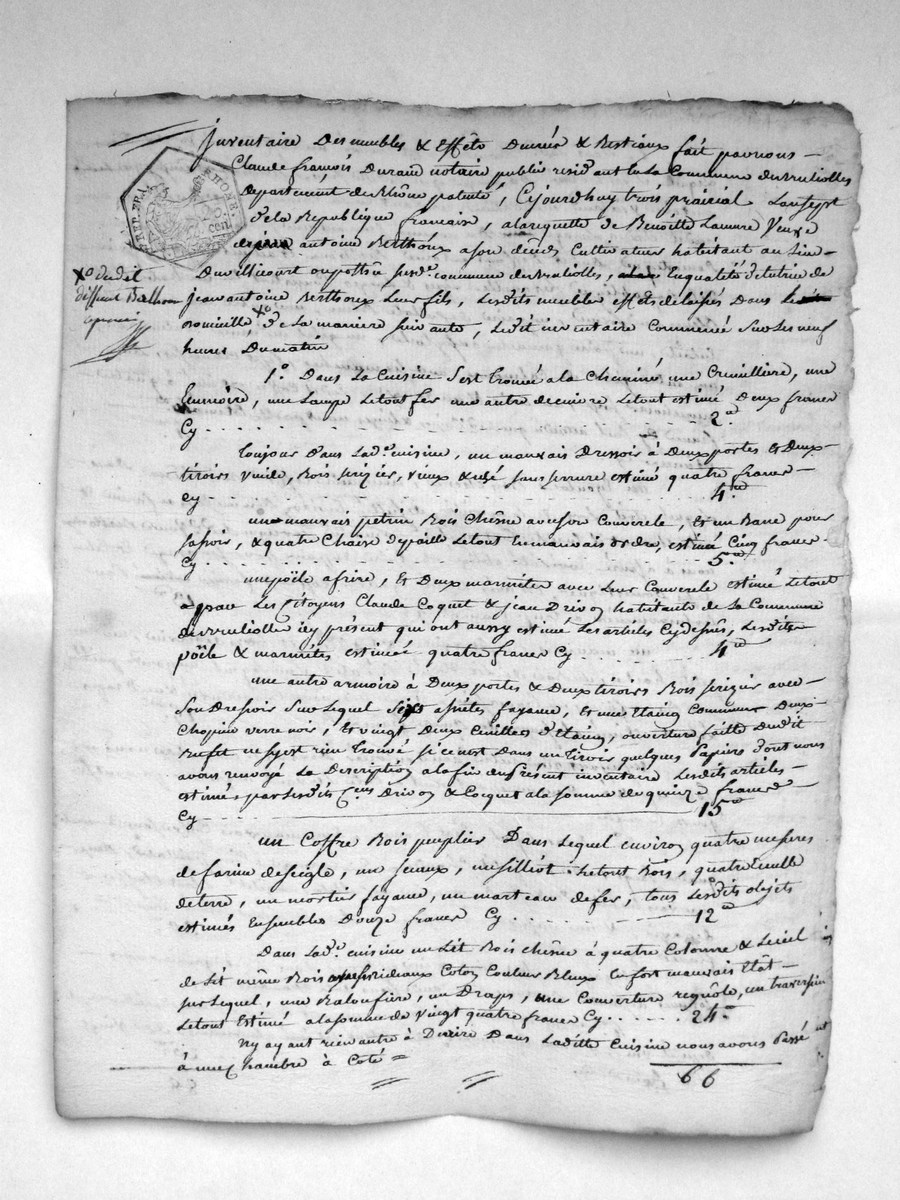 Inventaire Des meubles & Effêts Denrées & Bestiaux fait par nous
Claude françois Durand notaire public résid^t en la Commune de
département du Rhône patenté, Cejourdhuy trois prairial Lan sept
de la Republique francaise, a la requette de Benoitte Lamure Veuve
de jean antoine Berthoux a son décès Cultivateur habitant au Lieu
Du susd^e. commune de En qualité de tutrice de
jean antoine Berthoux Leur fils, Lesdits meubles effets délaissés Dans le
domicille X^o de La maniere suivante, Ledit inventaire Commencé Sur Les neuf
heures Du matin
X^o dudit
diffunt Berthoux
1°. Dans La Cuisine S'est trouvé a la Cheminé une Cremilliere, une
, une Lampe Le tout fer une autre de cuivre Le tout estimé Deux francs
Cy 2.
Toujour Dans lad^e. cuisine, un mauvais Dressoir à Deux portes & Deux
tiroirs vuide, Bois serizier, vieux & usé sans serrure estimé quatre francs
Cy 4.
un mauvais petrin Bois Chêne avec son Couvercle, Et un Banc pour
s'assoir, & quatre Chaise de paille Le tout En mauvais ordre, estimé Cinq francs
Cy 5.
une poële a frire, Et Deux marmites avec Leur Couvercle estimé Le tout
par Les Citoyens Claude Coquet & jean Drivon habitants de La Commune
de icy présent qui ont aussy estimé Les articles Cy dessus, Lesdits
poële & marmites estimés quatre francs Cy 4.
une autre armoire à Deux portes & Deux tiroirs Bois serizier avec
Son Dressoir Sur Lequel Sept assietes fayance, Et une Deux
Chopine verre noir, Et vingt Deux Cuilles d'Etaing, ouverture faitte Dudit
Bufet ne s'y est rien Trouvé si ce n'est Dans un Tiroir quelques Papiers dont nous
avons renvoyé La Description a la fin du présent inventaire Lesdits articles
estimés par Lesdits C^ens Drivon & Coquet a la somme de quinze francs
Cy 15
un Coffre Bois peuplier Dans Lequel environ quatre mesures
de farine de seigle, un seaux, Le tout Bois, quatre
de terre, un mortier fayance, un marteau de fer, Tous Lesdits objets
estimés Ensembles Douze francs Cy 12
Dans lad^e. cuisine un Lit Bois chêne à quatre Colonne & Le Ciel
de Lit même Bois rideaux Coton Couleur Bleux En fort mauvais Etât
sur Lequel, une , un Draps, une Couverture , un traversin
Le tout Estimé a la somme de vingt quatre francs Cy 24.
N'y ayant rien autre à Decrire Dans Laditte Cuisine nous avons Passé
à une Chambre à Coté =
66